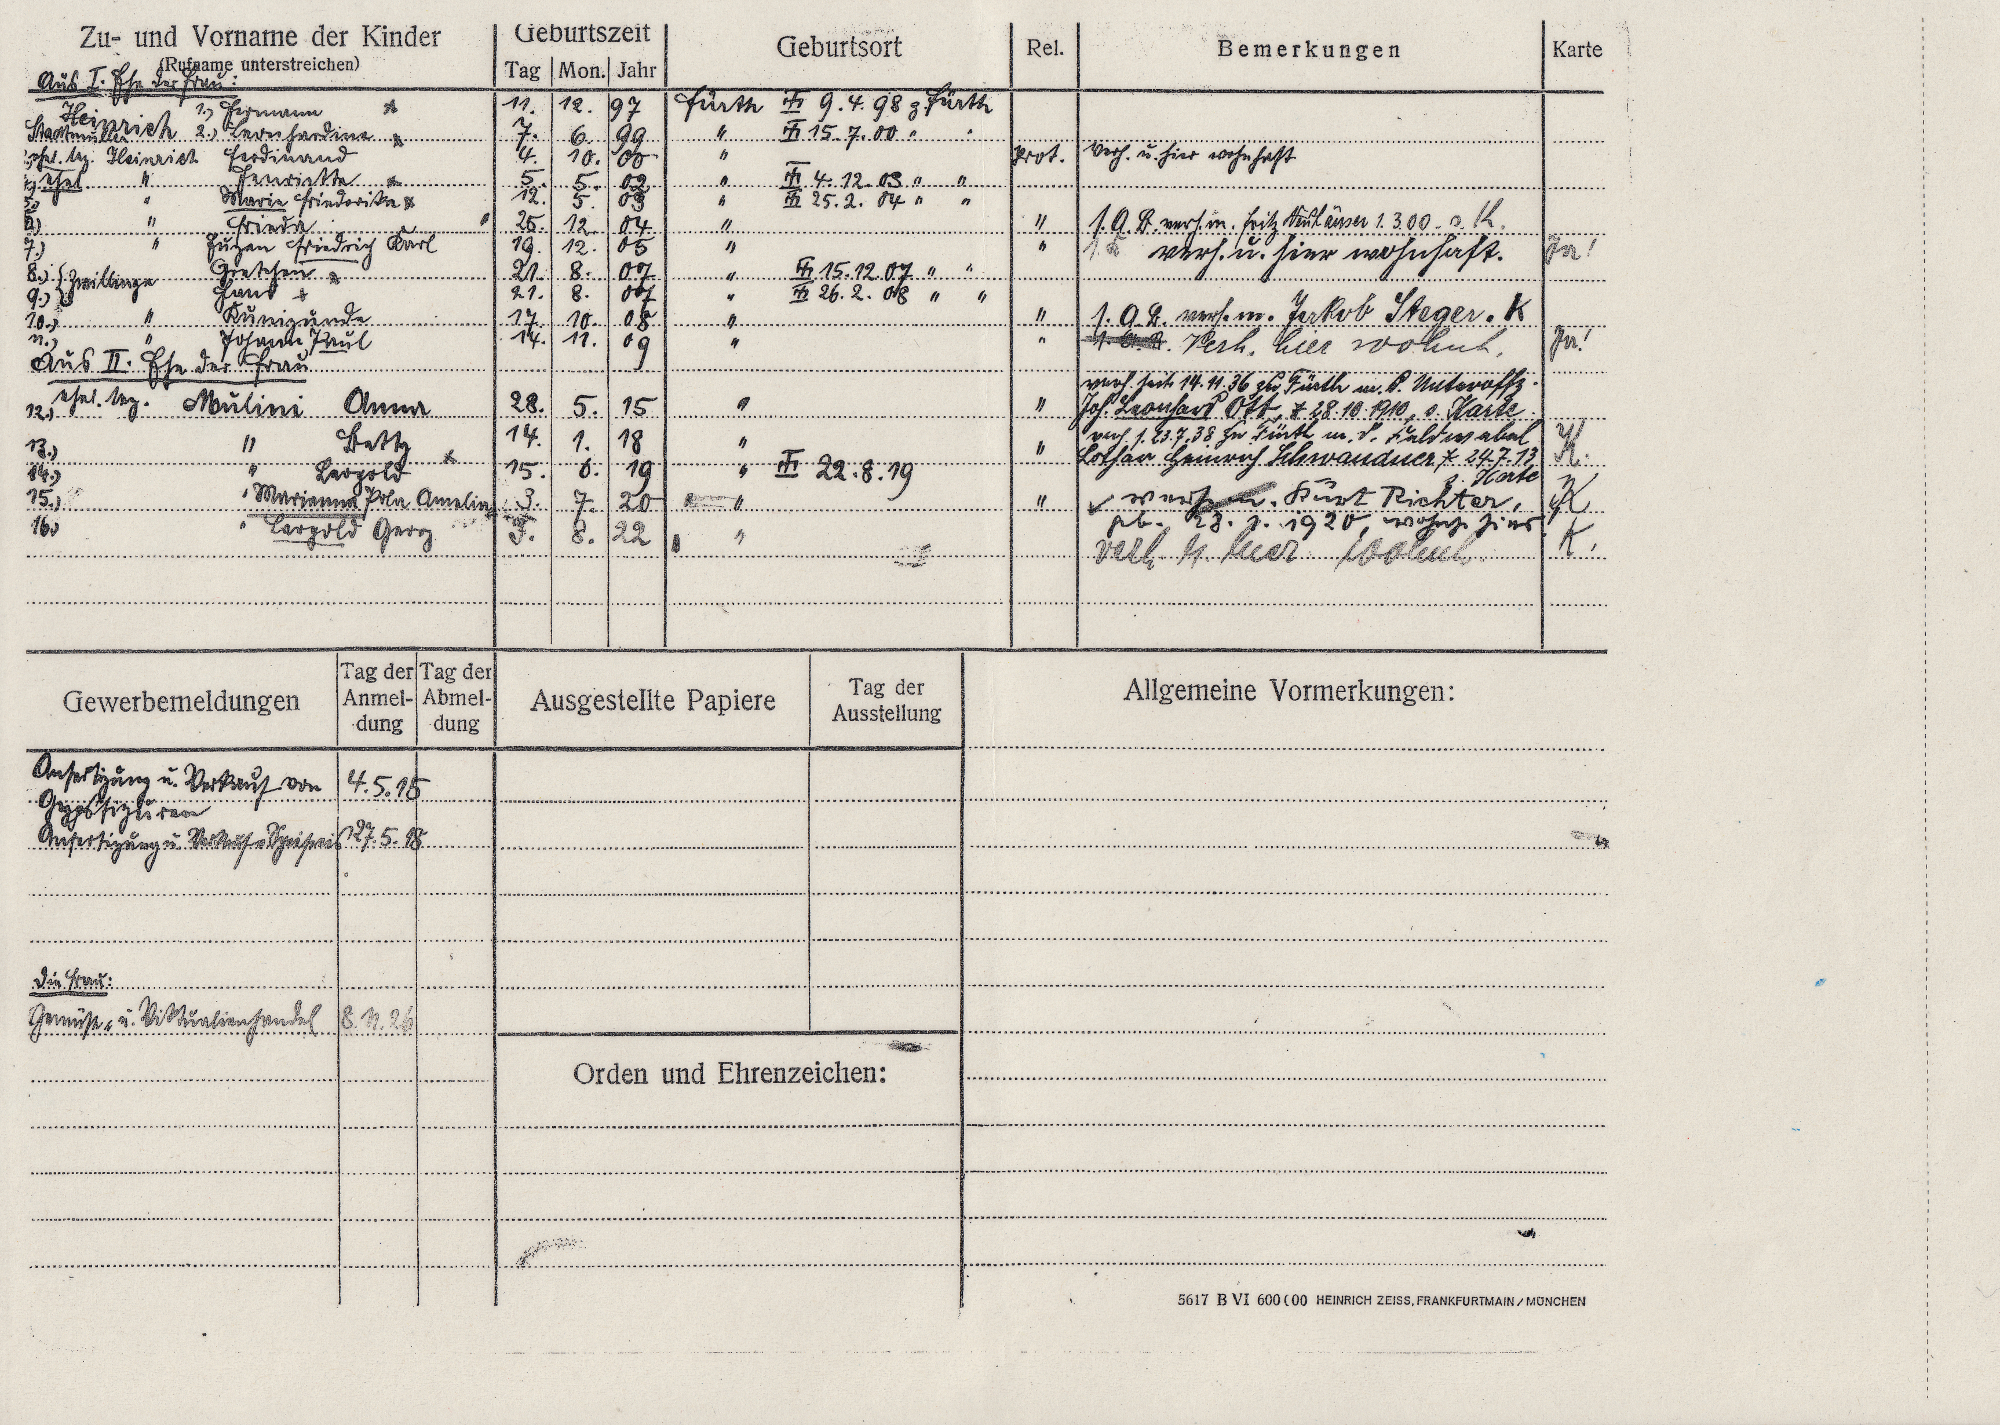 Zu- und Vorname der Kinder
(Rufname unterstreichen)
Geburtszeit
Tag Mon. Jahr
Geburtsort
Rel.
Bemerkungen
Karte
Aus I. Ehe der Frau:
Heinrich 1.) Hermann 11. 12. 97 Fürth 9.4.98 z. Fürth
2.) Leonhardine 7. 6. 99 " 15.7.00 " "
Heinrich Ferdinand 4. 10. 00 " Prot. verh. u. hier wohnhaft
ehel. " Henriette 5. 5. 02 " 4.12.03 " "
" Marie Friederike 12. 5. 03 " 25.2.04 " "
6.) " Frieda 25. 12. 04 " " verh. m. Fritz
7.) " Friedrich Karl 19. 12. 05 " " verh. u. hier wohnhaft. Ja!
8.) Zwillinge Gretchen 21. 8. 07 " 15.12.07 " "
9.) Hans 21. 8. 07 " 26.2.08 " "
10.) " Kunigunde 17. 10. 08 " " verh. m. Jakob Steger. K
11.) " Johann Paul 14. 11. 09 " " Verh. hier wohnh. Ja!
Aus II. Ehe der Frau
verh. seit 14.11.36 zu Fürth m. d. Unteroffz.
12.) Mulini Anna 28. 5. 15 " " Joh. Leonhard Ott, * 28.10.1910, s. Karte
verh. s. 23.7.38 zu Fürth m. d. Feldwebel
13.) " Betty 14. 1. 18 " " Lothar Heinrich Schwandner * 24.7.13 K.
s. Karte
14.) " Leopold 15. 6. 19 " 22.8.19
15.) " Marianna Amelia 3. 7. 20 " " verh. m. Kurt Richter, K
geb. 1920, wohnh. hier
16.) " Leopold Georg 5. 8. 22 " verh. u. hier wohnh. K.
Gewerbemeldungen
Tag der Anmel-dung
Tag der Abmel-dung
Ausgestellte Papiere
Tag der Ausstellung
Allgemeine Vormerkungen:
Anfertigung u. Verkauf von 4.5.15
Gypsfiguren
Anfertigung u. Verkauf v. Speiseeis 27.5.18
Die Frau:
Gemüse- u. Viktualienhandel 8.11.26
Orden und Ehrenzeichen:
5617 B VI 600(00 HEINRICH ZEISS, FRANKFURTMAIN/MÜNCHEN